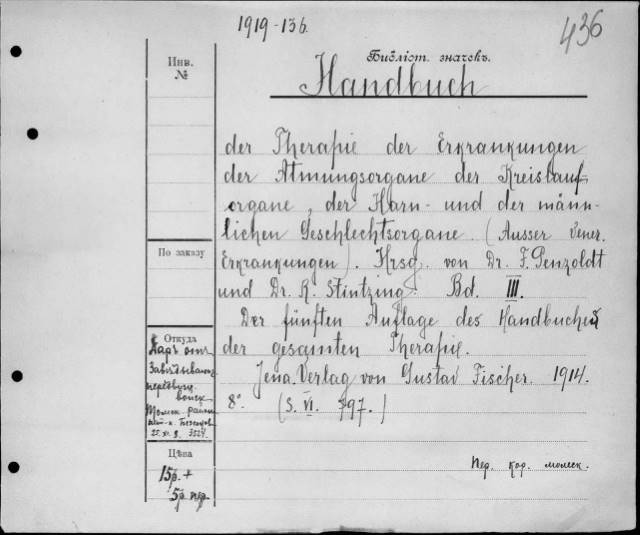 1919-136.
436
Библіот. значекъ.
Handbuch
Инв.
№
der Therapie der Erkrankungen
der Atmungsorgane der Kreislauf
organe, der Harn- und der männ-
lichen Geschlechtsorgane (Ausser vener.
Erkrankungen). Hrsg. von Dr. F. Penzoldt
und Dr. R. Stintzing. Bd. III.
Der fünften Auflage des Handbuches
der gesamten Therapie.
Jena. Verlag von Gustav Fischer. 1914.
8°. (S. VI. 797.)
По заказу
Откуда
Даръ отъ
Цѣна
15р. +
5р пер.
Пер. кор.